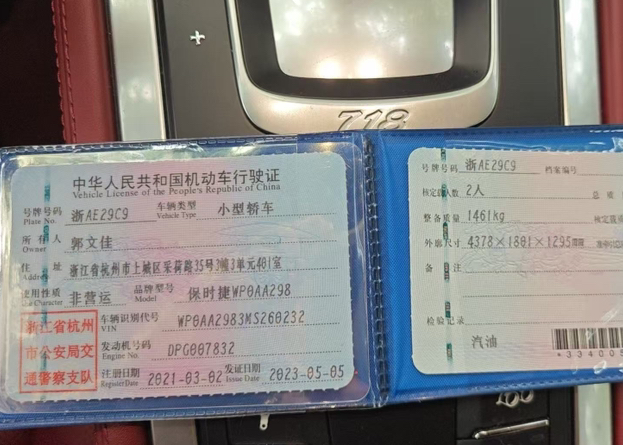 718
中华人民共和国机动车行驶证
Vehicle License of the People's Republic of China
号牌号码 浙AE29C9 车辆类型 小型轿车
Plate No. Vehicle Type
所有人 郭文佳
Owner
住址 浙江省杭州市上城区采荷路35号3幢3单元401室
Address
使用性质 非营运 品牌型号 保时捷WP0AA298
Use Character Model
浙江省杭州
市公安局交
通警察支队
车辆识别代号 WP0AA2983MS260232
VIN
发动机号码 DPG007832
Engine No.
注册日期 2021-03-02 发证日期 2023-05-05
Register Date Issue Date
号牌号码 浙AE29C9 档案编号
核定载人数 2人 总质
整备质量 1461kg 核定载质
外廓尺寸 4378×1801×1295mm
备注
检验记录
汽油